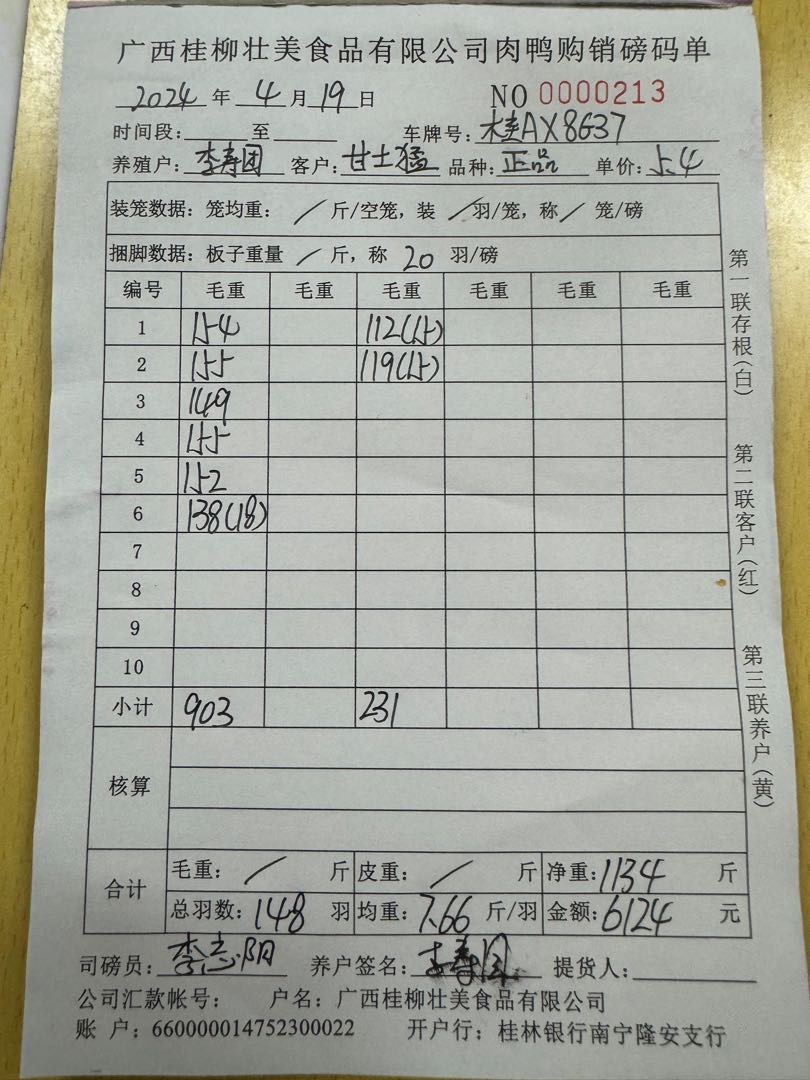 广西桂柳壮美食品有限公司肉鸭购销磅码单
2024 年 4 月 19 日 NO 0000213
时间段: 至 车牌号: 桂AX8G37
养殖户: 李寿团 客户: 甘土猛 品种: 正品 单价: 5.4
装笼数据: 笼均重: / 斤/空笼, 装 / 羽/笼, 称 / 笼/磅
捆脚数据: 板子重量 / 斤, 称 20 羽/磅
编号 毛重 毛重 毛重 毛重 毛重 毛重
1 154 112(15)
2 155 119(15)
3 149
4 155
5 152
6 138(18)
7
8
9
10
小计 903 231
核算
合计 毛重: / 斤 皮重: / 斤 净重: 1134 斤
总羽数: 148 羽 均重: 7.66 斤/羽 金额: 6124 元
司磅员: 李志阳 养户签名: 李寿团 提货人:
公司汇款帐号: 户名: 广西桂柳壮美食品有限公司
账 户: 660000014752300022 开户行: 桂林银行南宁隆安支行
第一联存根(白) 第二联客户(红) 第三联养户(黄)